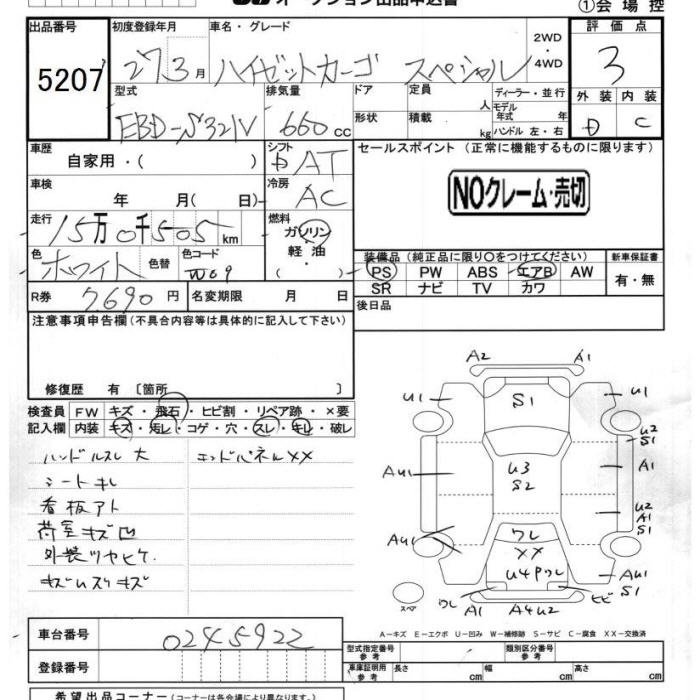 オークション出品申込書
①会場控
出品番号 初度登録年月 車名・グレード 2WD ・ 4WD 評価点
5207 27 3月 ハイゼットカーゴ スペシャル 3
型式 排気量 ドア 定員 人 ディーラー・並行 外装 内装
EBD-S321V 660cc 形状 積載 kg モデル年式 年式 ハンドル 左・右 D C
車歴 自家用・( ) シフト AT セールスポイント (正常に機能するものに限ります)
車検 年 月( 日) 冷房 AC NOクレーム・売切
走行 15万0千505km 燃料 ガソリン
軽油
色 ホワイト 色替 色コード W09
装備品 (純正品に限り○をつけてください) 新車保証書
PS PW ABS エアB AW 有・無
SR ナビ TV カワ
R券 7690円 名変期限 月 日 後日品
注意事項申告欄 (不具合内容等は具体的に記入して下さい)
修復歴 有 〔箇所 〕
検査員 FW キズ・飛石・ヒビ割・リペア跡・×要
記入欄 内装 キズ・汚レ・コゲ・穴・スレ・キレ・破レ
ハンドルスレ大 エンドパネルXX
シートキレ
看板アト
荷室キズ凹
外装ツヤヒケ
A2 A1
U1 S1 U1
U2
S1
AU1 U3 A1
S2
U2
A1
S1
AU1 ワレ
XX
U4Pワレ AU1
S1
スペア ワレ A1 A4U2 ヒビ
A－キズ E－エクボ U－凹み W－補修跡 S－サビ C－腐食 XX－交換済
車台番号 0245922
型式指定番号 参考 類別区分番号 参考
登録番号 車庫証明用 参考 長さ cm 幅 cm 高さ cm
希望出品コーナー(出品コーナーは各会場により異なります)